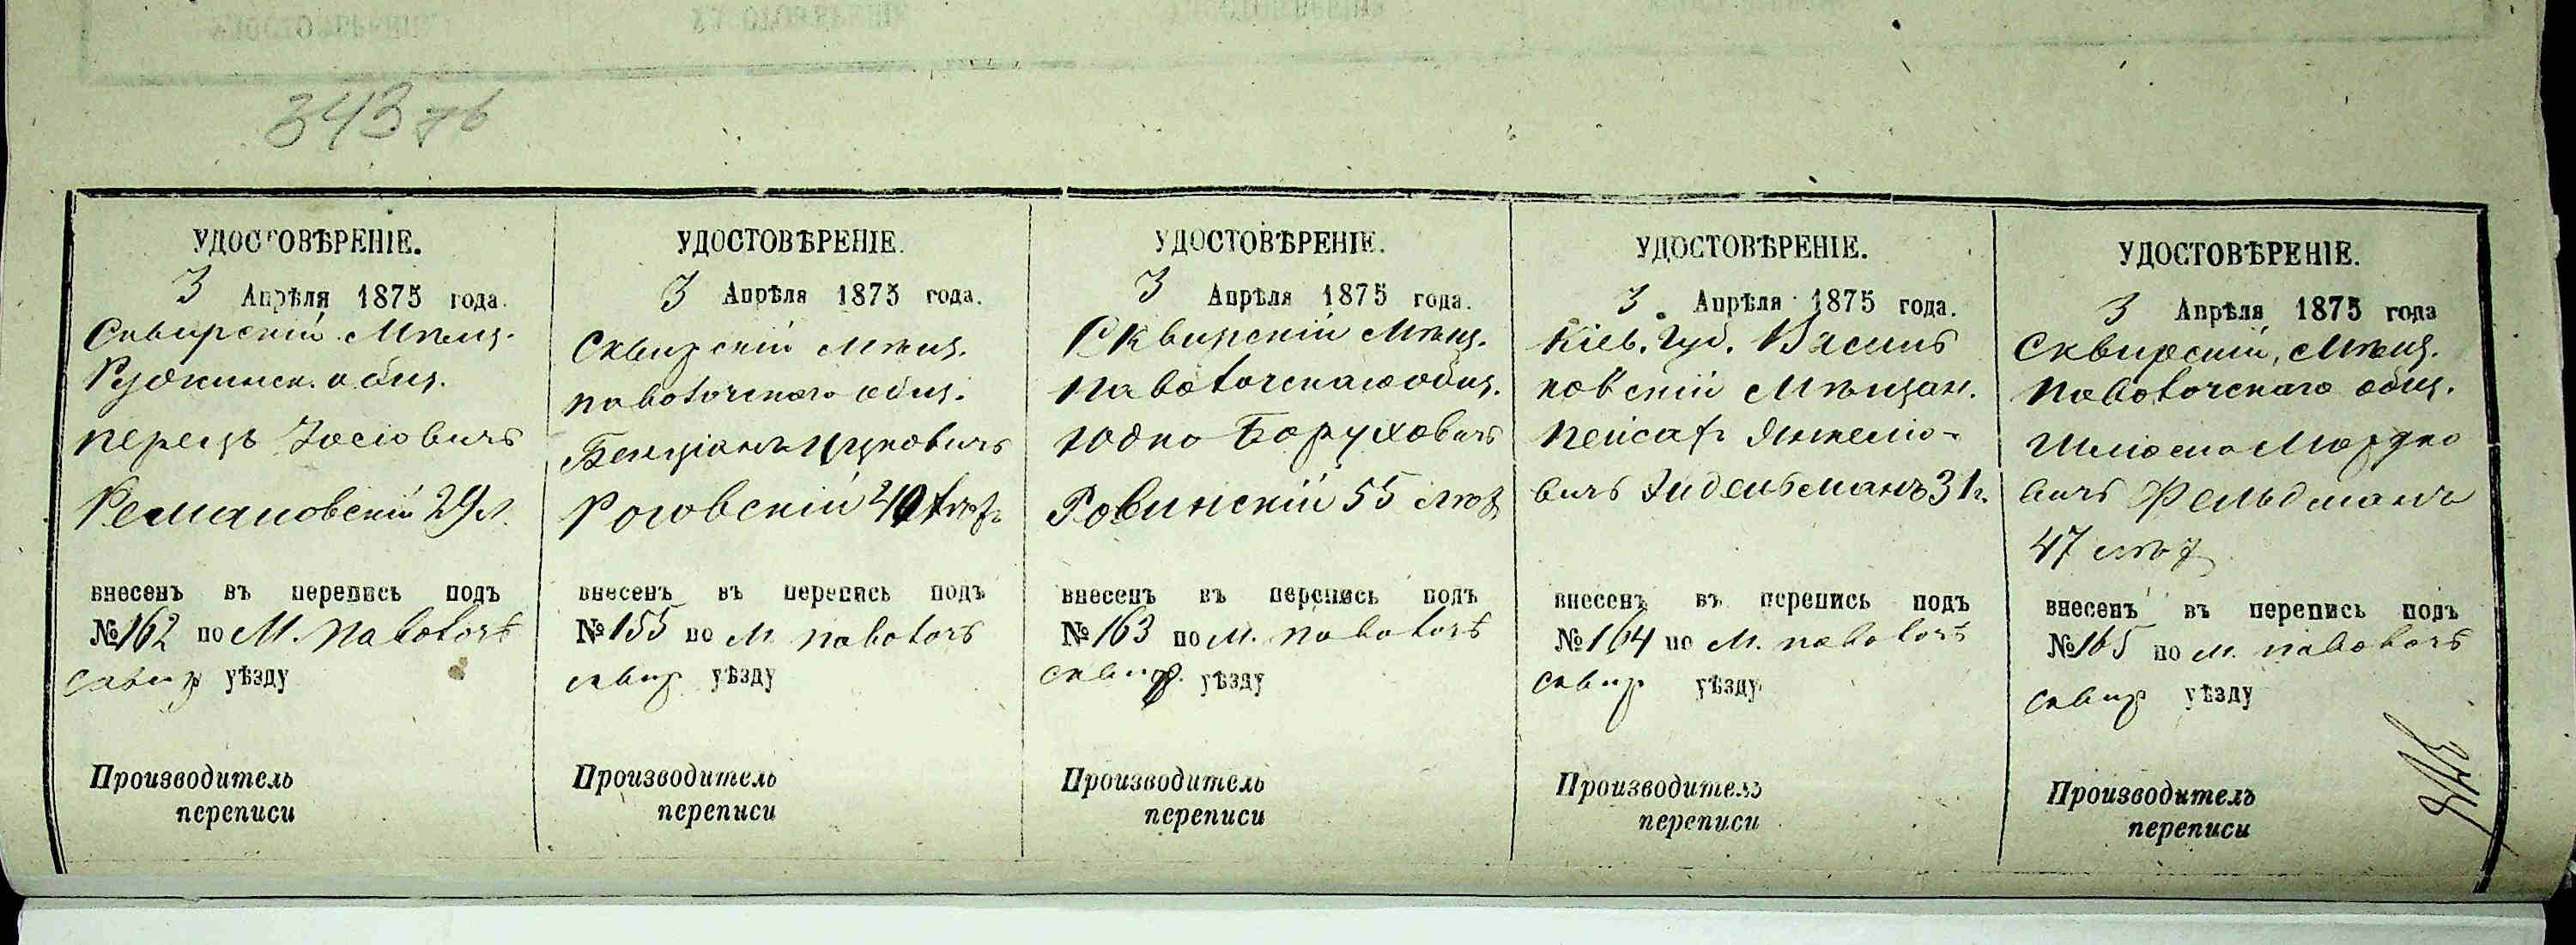 343 об
УДОСТОВѢРЕНІЕ.
3 Апрѣля 1875 года.
Сквирскій Мѣщ.
Ружинск. общ.
Перецъ Іосіовичъ
29 л.
внесенъ въ перепись подъ
№ 162 по М. Паволочѣ
сквир уѣзду
Производитель
переписи
УДОСТОВѢРЕНІЕ.
3 Апрѣля 1875 года.
Сквирскій мѣщ.
Паволочскаго общ.
Бенціанъ Ицковичъ
Роговскій лѣтъ
внесенъ въ перепись подъ
№ 155 по М Паволочѣ
сквир уѣзду
Производитель
переписи
УДОСТОВѢРЕНІЕ.
3 Апрѣля 1875 года.
Сквирскій мѣщ.
Паволочскаго общ.
Юдко Боруховичъ
Ровинскій 55 лѣт
внесенъ въ перепись подъ
№ 163 по М. Паволочѣ
сквир. уѣзду
Производитель
переписи
УДОСТОВѢРЕНІЕ.
3 Апрѣля 1875 года.
Кіев. Губ. Василь
ковскій Мѣщан.
Пейсах Янкеліо-
вичъ Зидельманъ 31 г.
внесенъ въ перепись подъ
№ 164 по М. Паволочѣ
сквир уѣзду
Производитель
переписи
УДОСТОВѢРЕНІЕ.
3 Апрѣля 1875 года
Сквирскій, Мѣщ.
Паволочскаго общ.
Шліома Мордко
вичъ Фельдманъ
47 лѣт
внесенъ въ перепись подъ
№ 165 по М. Паволочѣ
сквир уѣзду
Производитель
переписи